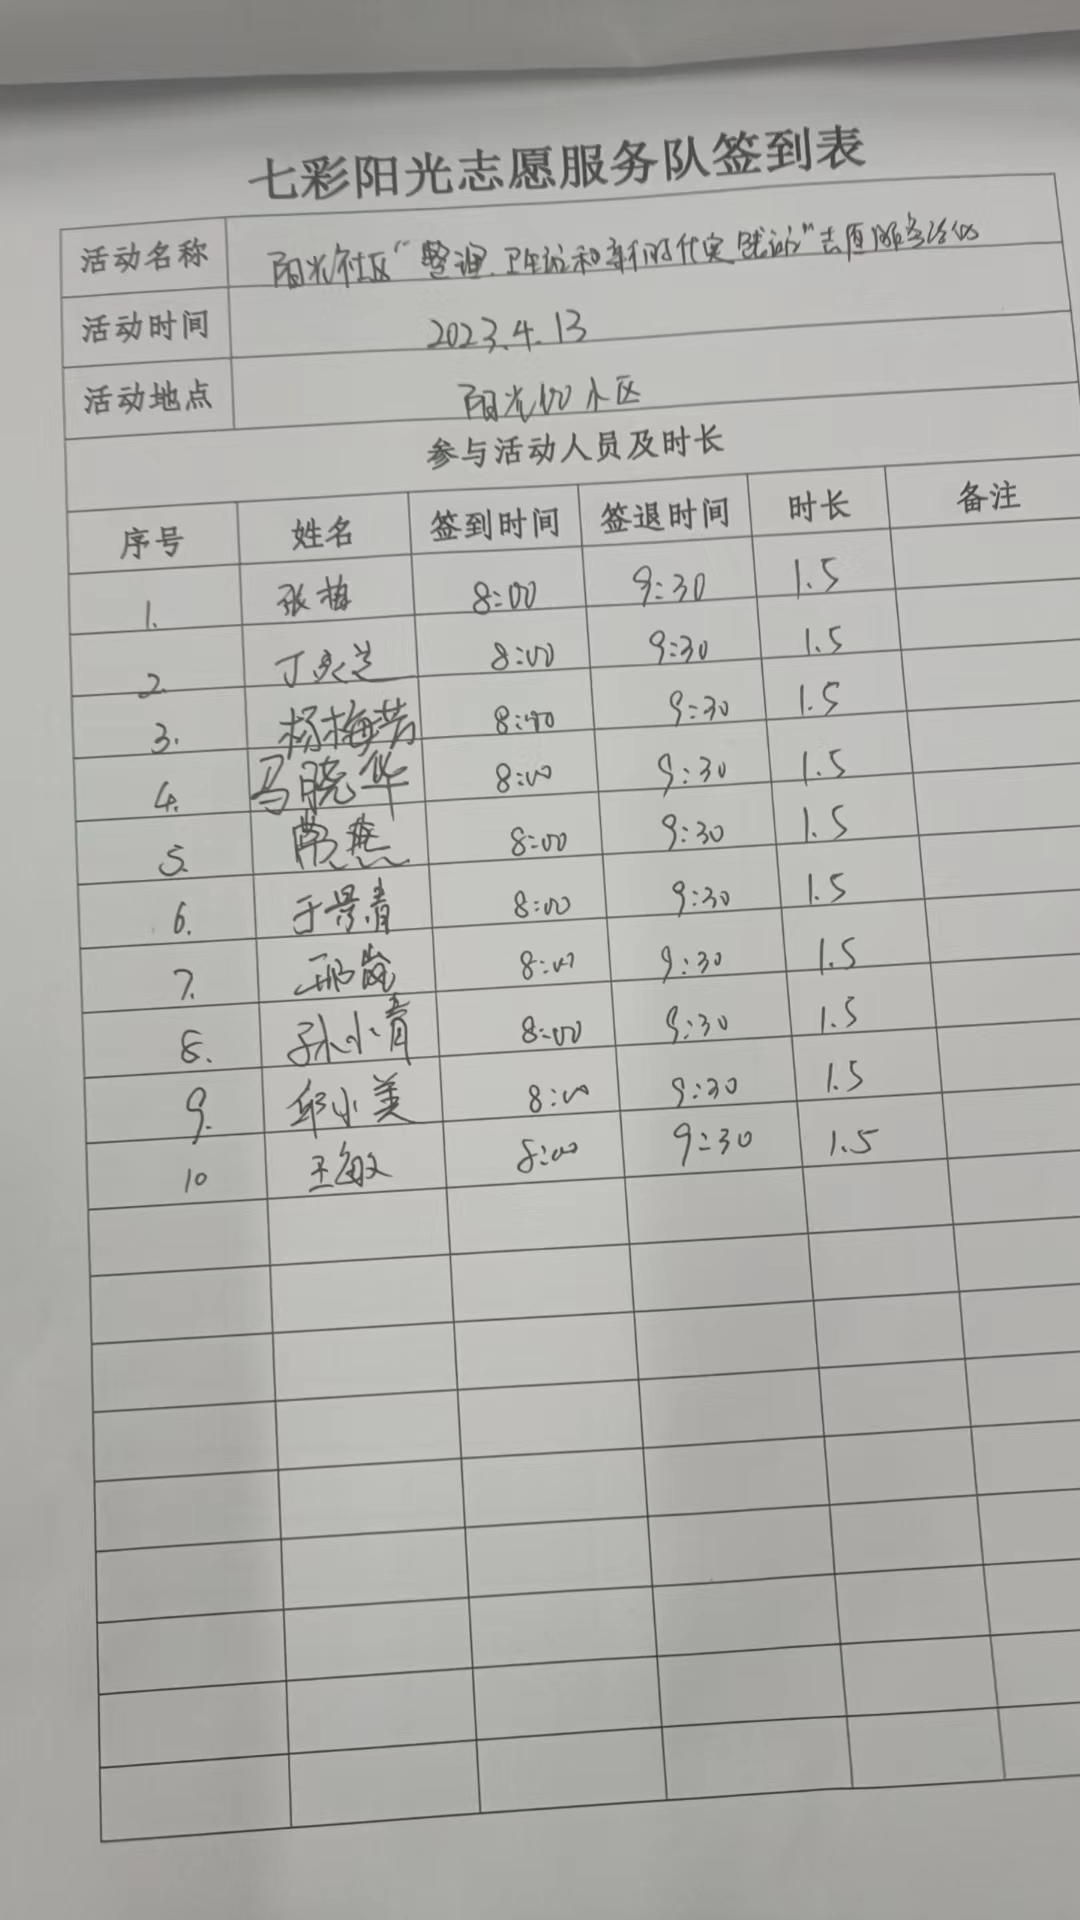 七彩阳光志愿服务队签到表
活动名称 阳光社区“整理、卫生 和新时代实践 ”志愿服务活动
活动时间 2023.4.13
活动地点 阳光 小区
参与活动人员及时长
序号 姓名 签到时间 签退时间 时长 备注
1. 张梅 8:00 9:30 1.5
2. 丁 芝 8:00 9:30 1.5
3. 杨梅芳 8:00 9:30 1.5
4. 马晓华 8:00 9:30 1.5
5. 常燕 8:00 9:30 1.5
6. 于景青 8:00 9:30 1.5
7. 8:00 9:30 1.5
8. 孙小青 8:00 9:30 1.5
9. 邱小美 8:00 9:30 1.5
10 王敏 8:00 9:30 1.5